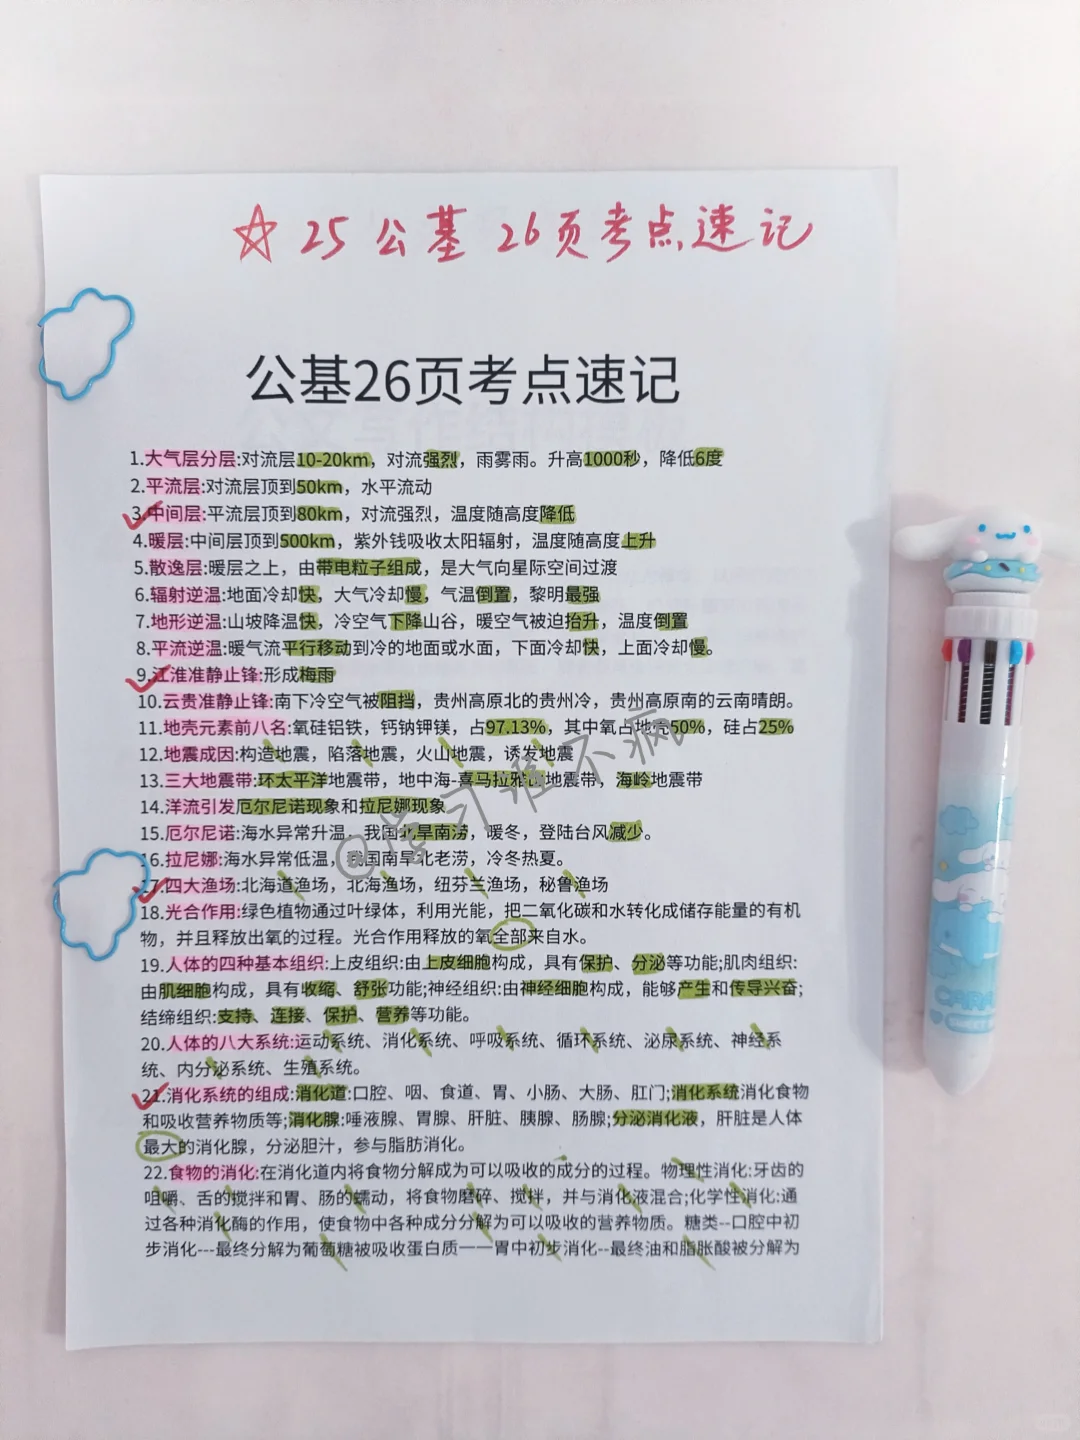 ☆ 25 公基 26页考点速记
公基26页考点速记
1.大气层分层:对流层10-20km，对流强烈，雨雾雨。升高1000秒，降低6度
2.平流层:对流层顶到50km，水平流动
3.中间层:平流层顶到80km，对流强烈，温度随高度降低
4.暖层:中间层顶到500km，紫外钱吸收太阳辐射，温度随高度上升
5.散逸层:暖层之上，由带电粒子组成，是大气向星际空间过渡
6.辐射逆温:地面冷却快，大气冷却慢，气温倒置，黎明最强
7.地形逆温:山坡降温快，冷空气下降山谷，暖空气被迫抬升，温度倒置
8.平流逆温:暖气流平行移动到冷的地面或水面，下面冷却快，上面冷却慢。
9.江淮准静止锋:形成梅雨
10.云贵准静止锋:南下冷空气被阻挡，贵州高原北的贵州冷，贵州高原南的云南晴朗。
11.地壳元素前八名:氧硅铝铁，钙钠钾镁，占97.13%，其中氧占地壳50%，硅占25%
12.地震成因:构造地震，陷落地震，火山地震，诱发地震
13.三大地震带:环太平洋地震带，地中海-喜马拉雅山地震带，海岭地震带
14.洋流引发厄尔尼诺现象和拉尼娜现象
15.厄尔尼诺:海水异常升温，我国北旱南涝，暖冬，登陆台风减少。
16.拉尼娜:海水异常低温，我国南旱北老涝，冷冬热夏。
17.四大渔场:北海道渔场，北海渔场，纽芬兰渔场，秘鲁渔场
18.光合作用:绿色植物通过叶绿体，利用光能，把二氧化碳和水转化成储存能量的有机
物，并且释放出氧的过程。光合作用释放的氧全部来自水。
19.人体的四种基本组织:上皮组织:由上皮细胞构成，具有保护、分泌等功能;肌肉组织:
由肌细胞构成，具有收缩、舒张功能;神经组织:由神经细胞构成，能够产生和传导兴奋;
结缔组织:支持、连接、保护、营养等功能。
20.人体的八大系统:运动系统、消化系统、呼吸系统、循环系统、泌尿系统、神经系
统、内分泌系统、生殖系统。
21.消化系统的组成:消化道:口腔、咽、食道、胃、小肠、大肠、肛门;消化系统消化食物
和吸收营养物质等;消化腺:唾液腺、胃腺、肝脏、胰腺、肠腺;分泌消化液，肝脏是人体
最大的消化腺，分泌胆汁，参与脂肪消化。
22.食物的消化:在消化道内将食物分解成为可以吸收的成分的过程。物理性消化:牙齿的
咀嚼、舌的搅拌和胃、肠的蠕动，将食物磨碎、搅拌，并与消化液混合;化学性消化:通
过各种消化酶的作用，使食物中各种成分分解为可以吸收的营养物质。糖类--口腔中初
步消化---最终分解为葡萄糖被吸收蛋白质一一胃中初步消化--最终油和脂胀酸被分解为
@学习谁不疯